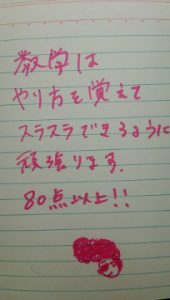 数学は
やり方を覚えて
スラスラできるように
頑張ります.
80点以上!!